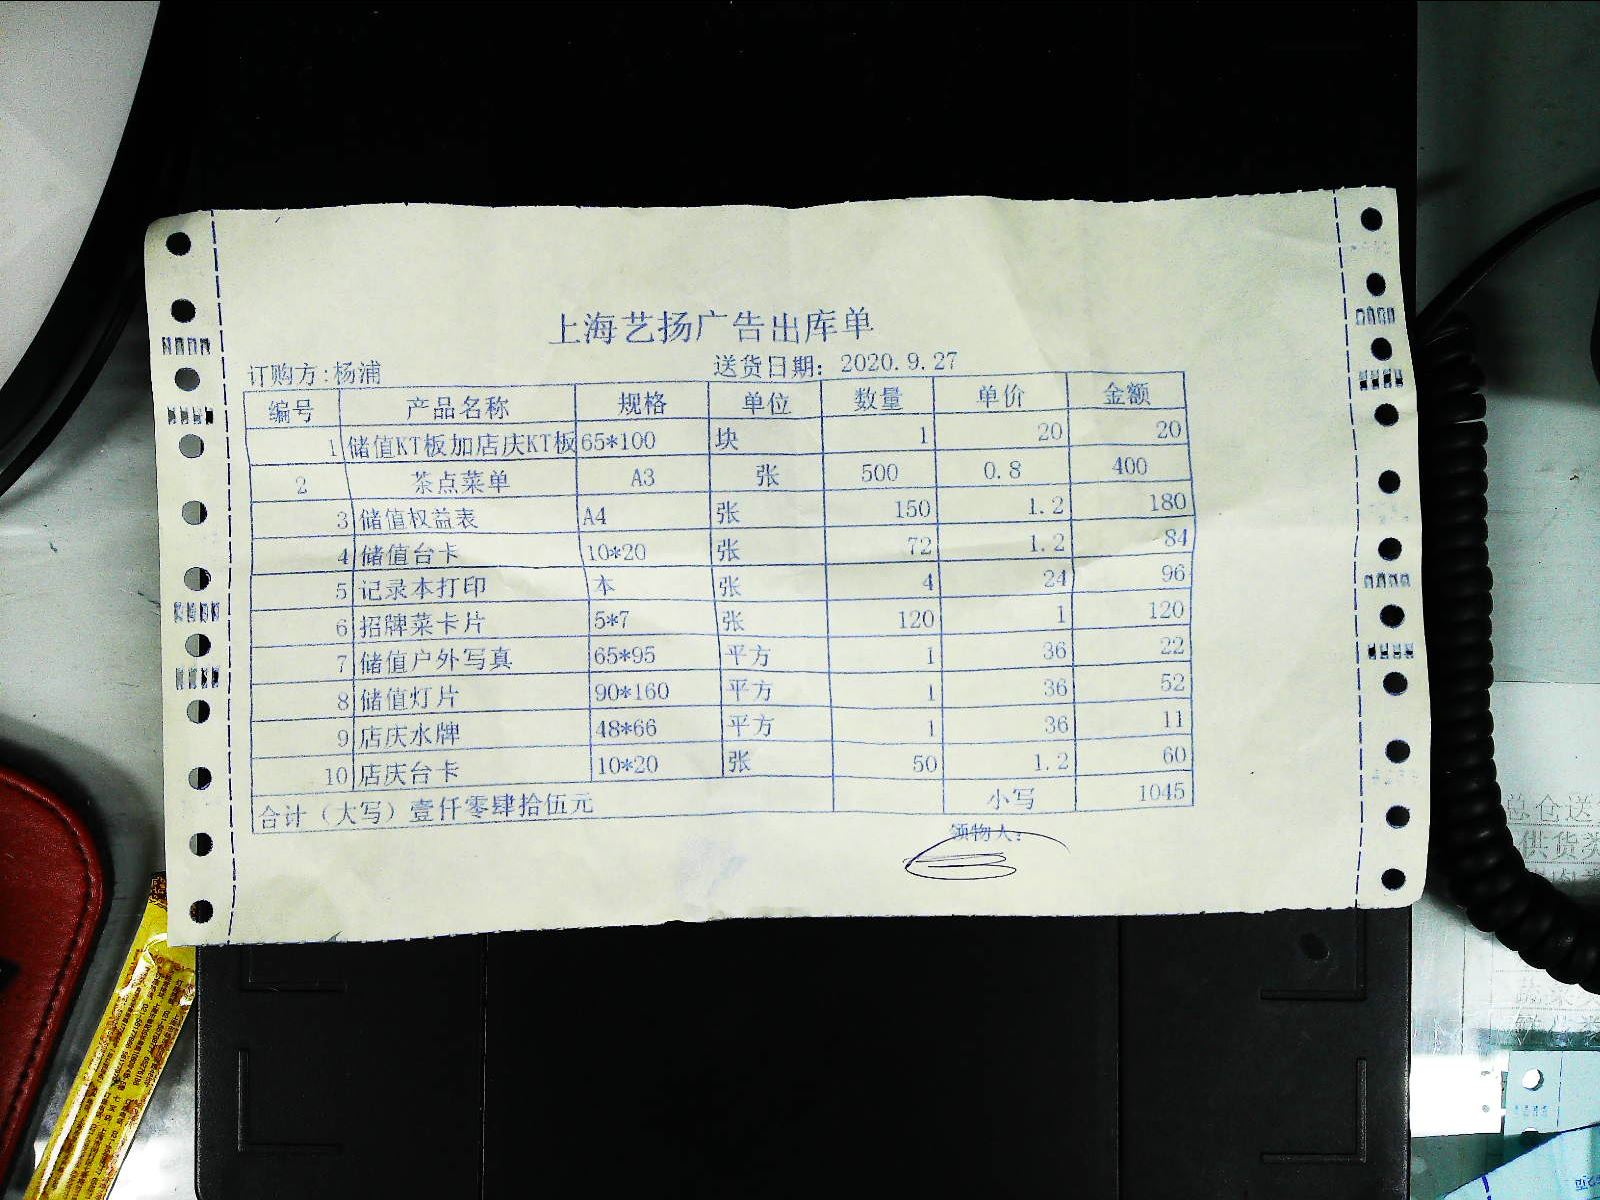 上海艺扬广告出库单
订购方:杨浦 送货日期: 2020.9.27
编号 产品名称 规格 单位 数量 单价 金额
1 储值KT板加店庆KT板 65*100 块 1 20 20
2 茶点菜单 A3 张 500 0.8 400
3 储值权益表 A4 张 150 1.2 180
4 储值台卡 10*20 张 72 1.2 84
5 记录本打印 本 张 4 24 96
6 招牌菜卡片 5*7 张 120 1 120
7 储值户外写真 65*95 平方 1 36 22
8 储值灯片 90*160 平方 1 36 52
9 店庆水牌 48*66 平方 1 36 11
10 店庆台卡 10*20 张 50 1.2 60
合计（大写）壹仟零肆拾伍元 小写 1045
领物人:
总仓送
供货类